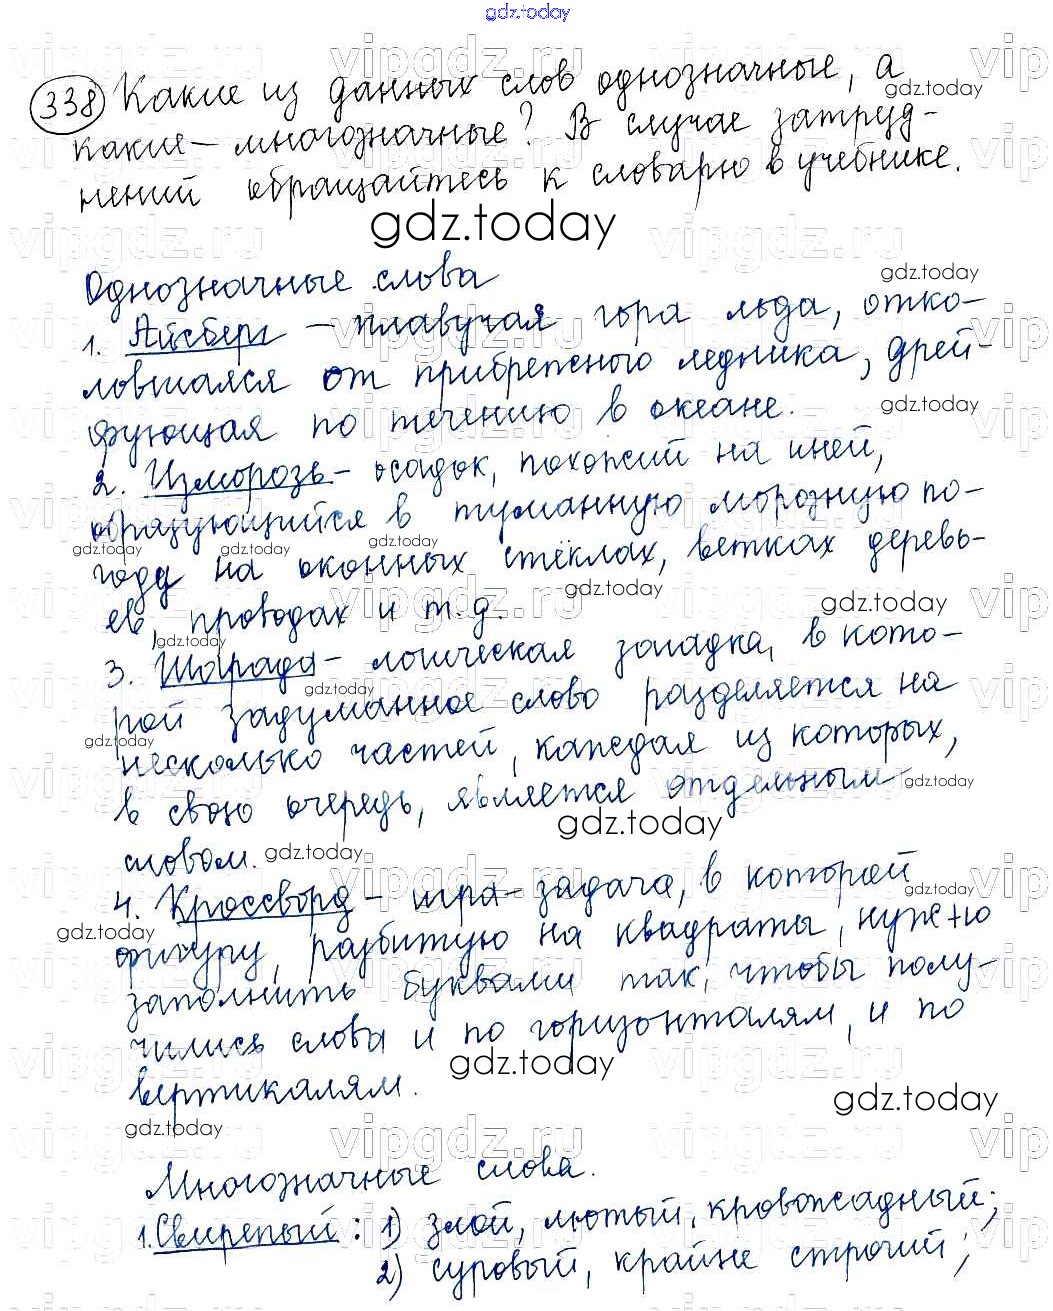 gdz.today
338 Какие из данных слов однозначные, а
какие – многозначные? В случае затруд-
нений обращайтесь к словарю в учебнике.
gdz.today
Однозначные слова
1. Айсберг – плавучая гора льда, отко-
ловшаяся от прибрежного ледника, дрей-
фующая по течению в океане.
2. Изморозь – осадок, похожий на иней,
образующийся в туманную морозную по-
году на оконных стёклах, ветках деревь-
ев, проводах и т.д.
3. Шарада – логическая загадка, в кото-
рой задуманное слово разделяется на
несколько частей, каждая из которых,
в свою очередь, является отдельным
словом.
4. Кроссворд – игра-задача, в которой
фигуру, разбитую на квадраты, нужно
заполнить буквами так, чтобы полу-
чились слова и по горизонталям, и по
вертикалям.
Многозначные слова.
1. Свирепый: 1) злой, лютый, кровожадный;
2) суровый, крайне строгий;